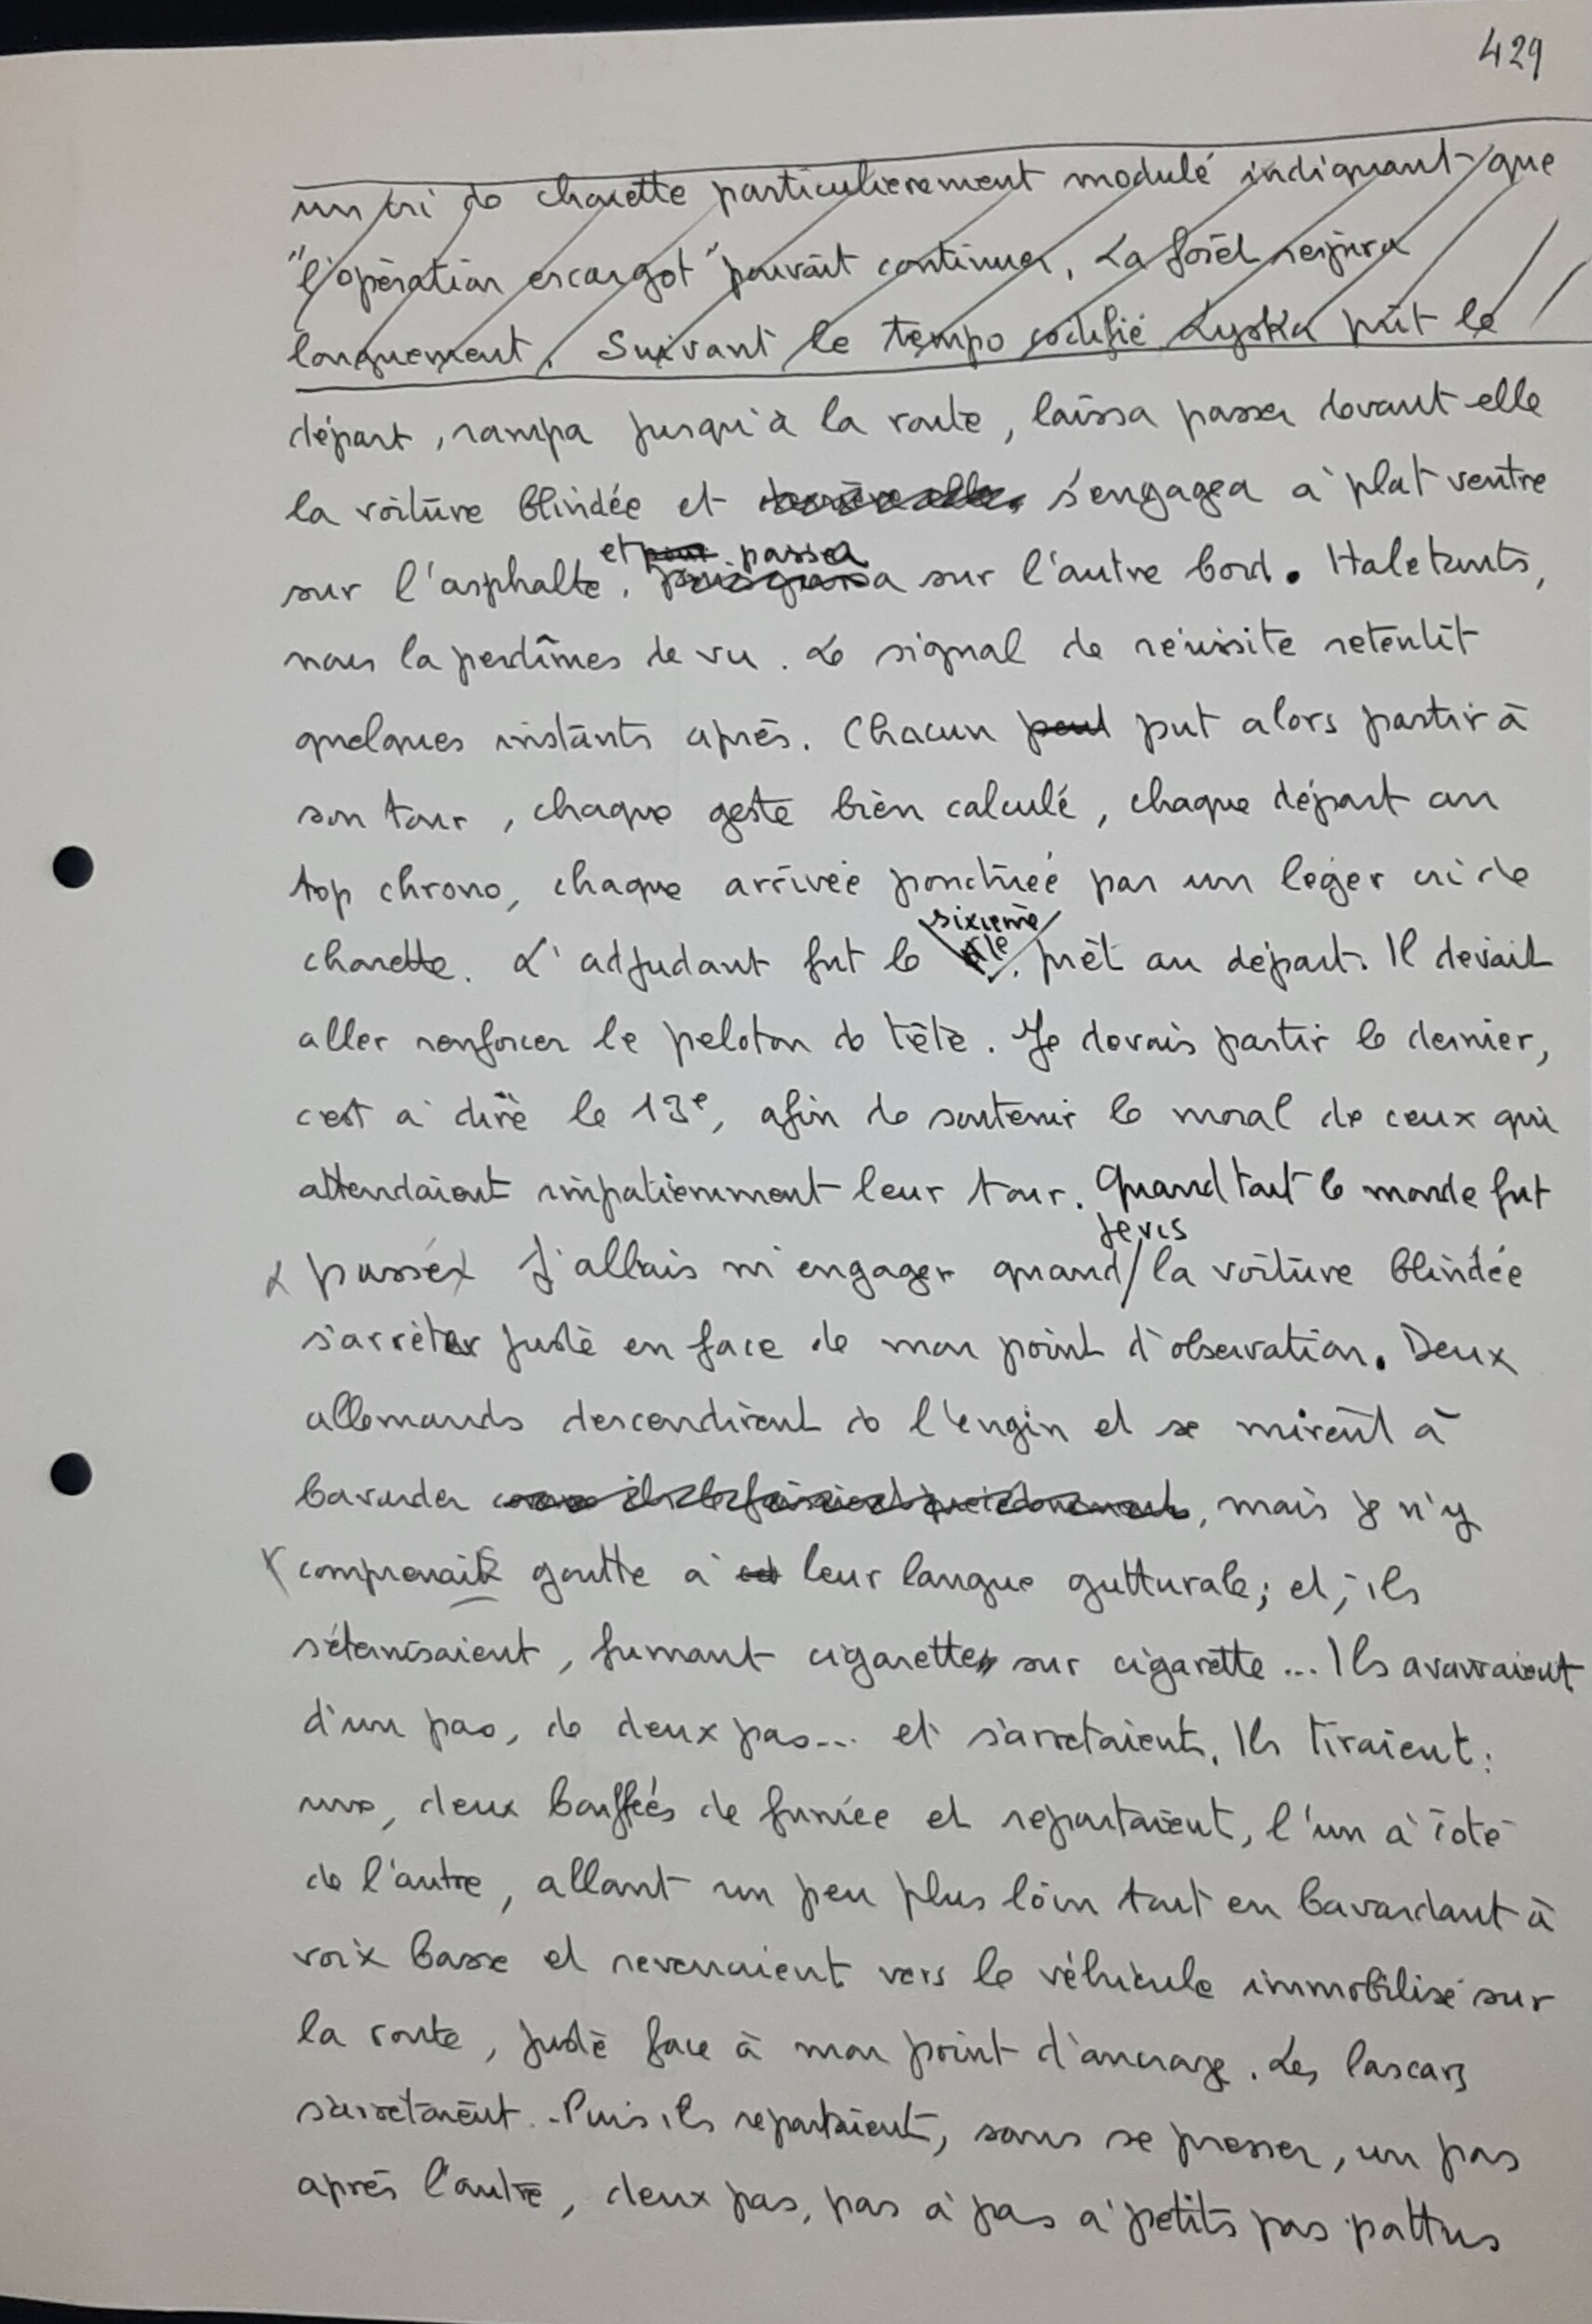 429
un cri de chouette particulierement modulé indiquant que
"l'opération escargot" pouvait continuer. La forêt respira
longuement. Suivant le tempo codifié Lyska prit le
départ, rampa jusqu'à la route, laissa passer devant elle
la voiture blindée et derrière elle, s'engagea à plat ventre
et pour passa
sur l'asphalte, puis passa sur l'autre bord. Haletants,
nous la perdîmes de vu. Le signal de réussite retentit
quelques instants après. Chacun peut put alors partir à
son tour, chaque geste bien calculé, chaque départ au
top chrono, chaque arrivée ponctuée par un léger cri de
sixieme
chouette. L'adjudant fut le prêt au départ. Il devait
aller renforcer le peloton de tête. Je devais partir le dernier,
c'est à dire le 13e, afin de soutenir le moral de ceux qui
attendaient impatiemment leur tour. Quand tout le monde fut
je vis
passé J'allais m'engager quand la voiture blindée
s'arrêter juste en face de mon point d'observation. Deux
allemands descendirent de l'engin et se mirent à
bavarder comme ils le faisaient précédemment, mais je n'y
comprenais goutte à leur langue gutturale; et, ils
s'éternisaient, fumant cigarette sur cigarette... Ils avançaient
d'un pas, de deux pas... et s'arretaient. Ils tiraient:
une, deux bouffées de fumée et repartaient, l'un à côté
de l'autre, allant un peu plus loin tout en bavardant à
voix basse et revenaient vers le véhicule immobilisé sur
la route, juste face à mon point d'ancrage. Les lascars
s'arretaient. Puis ils repartaient, sans se presser, un pas
après l'autre, deux pas, pas à pas à petits pas pattus